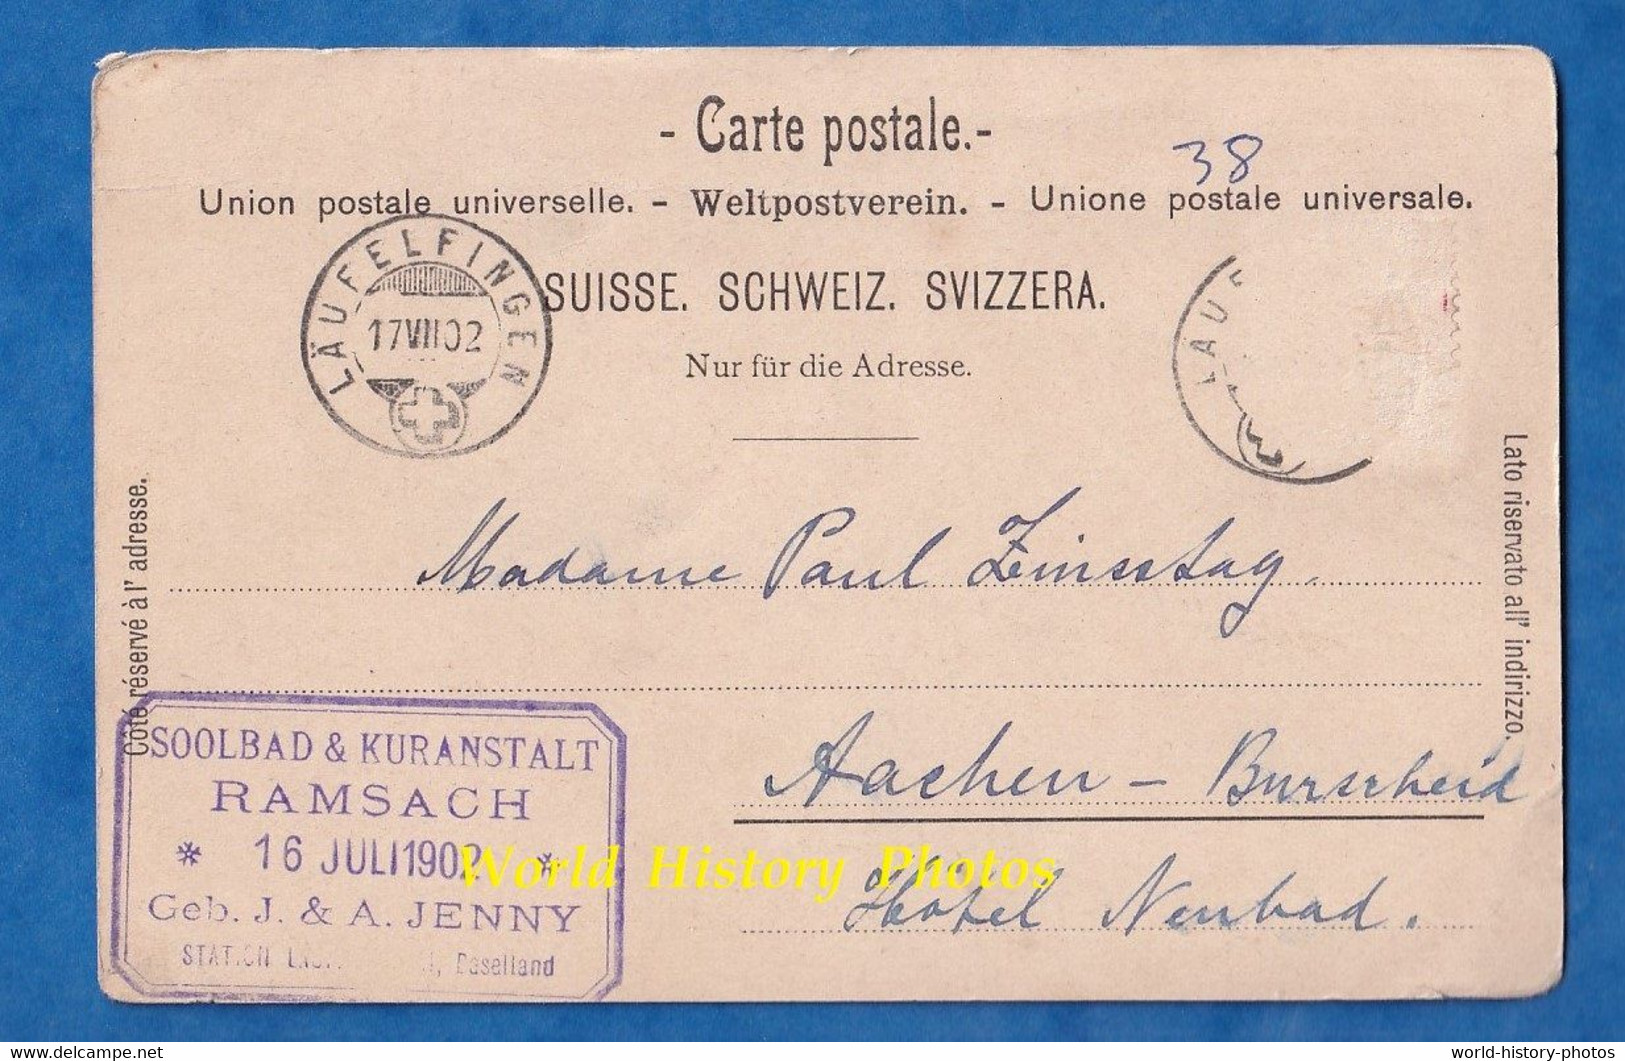 - Carte postale. -
38
Union postale universelle. - Weltpostverein. - Unione postale universale.
LÄUFELFINGEN
17 VII 02
SUISSE. SCHWEIZ. SVIZZERA.
LÄUF
Nur für die Adresse.
Côté réservé à l'adresse.
Lato riservato all' indirizzo.
Madame Paul Zinsstag.
Aachen - Burscheid
Hôtel Neubad.
SOOLBAD & KURANSTALT
RAMSACH
* 16 JULI 1902 *
Geb. J. & A. JENNY
STATION Baselland
World History Photos
world-history-photos